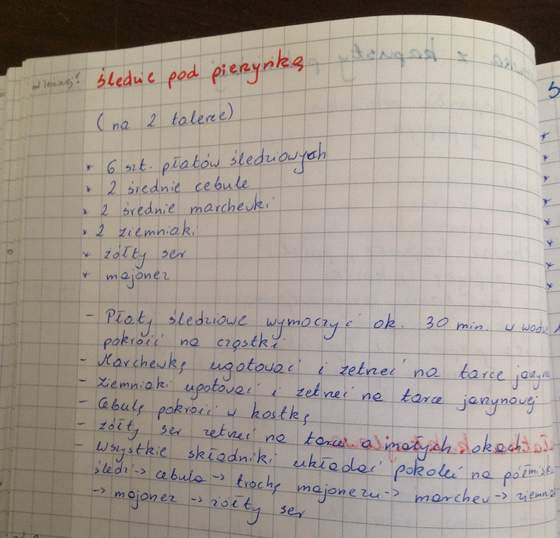 śledzie pod pierzynką
(na 2 talerze)
* 6 szt. płatów śledziowych
* 2 średnie cebule
* 2 średnie marchewki
* 2 ziemniaki
* żółty ser
* majonez
- Płaty śledziowe wymoczyć ok. 30 min. w
pokroić na cząstki
- Marchewkę ugotować i zetrzeć na tarce
- ziemniaki ugotować i zetrzeć na tarce jarzynowej
- Cebulę pokroić w kostkę
- żółty ser zetrzeć na tarce o małych okach
- Wszystkie składniki układać pokolei na
śledź -> cebula -> trochę majonezu -> marchew ->
-> majonez -> żółty ser